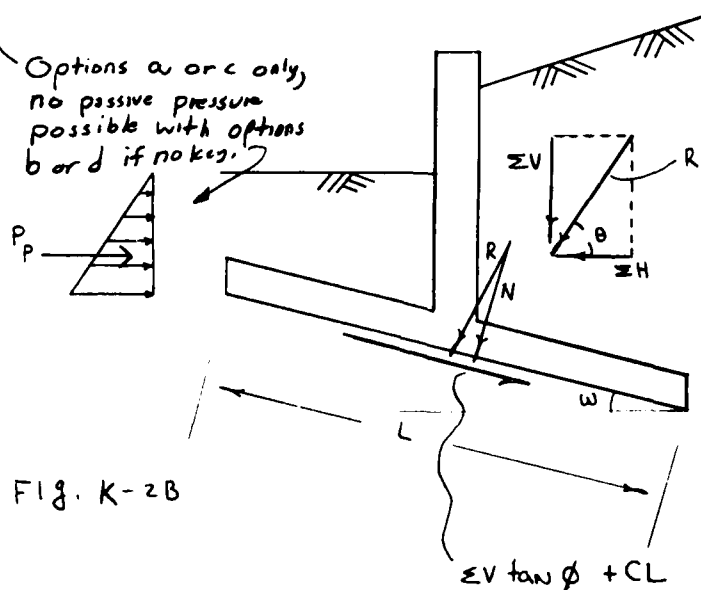 Options a or c only,
no passive pressure
possible with options
b or d if no key.
ΣV
R
θ
ΣH
P_P
R
N
ω
L
Fig. K-2B
ΣV tan ϕ + CL